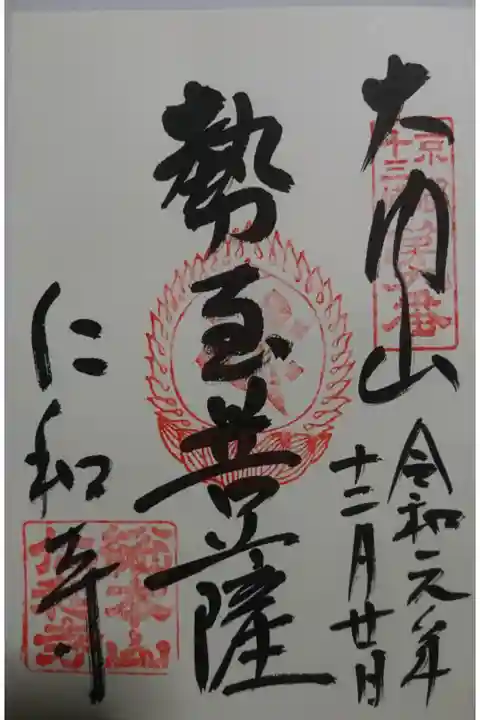 大内山
令和元年
十二月廿日
勢至菩薩
仁和寺
京都
十三佛
第九番
総本山
仁和寺